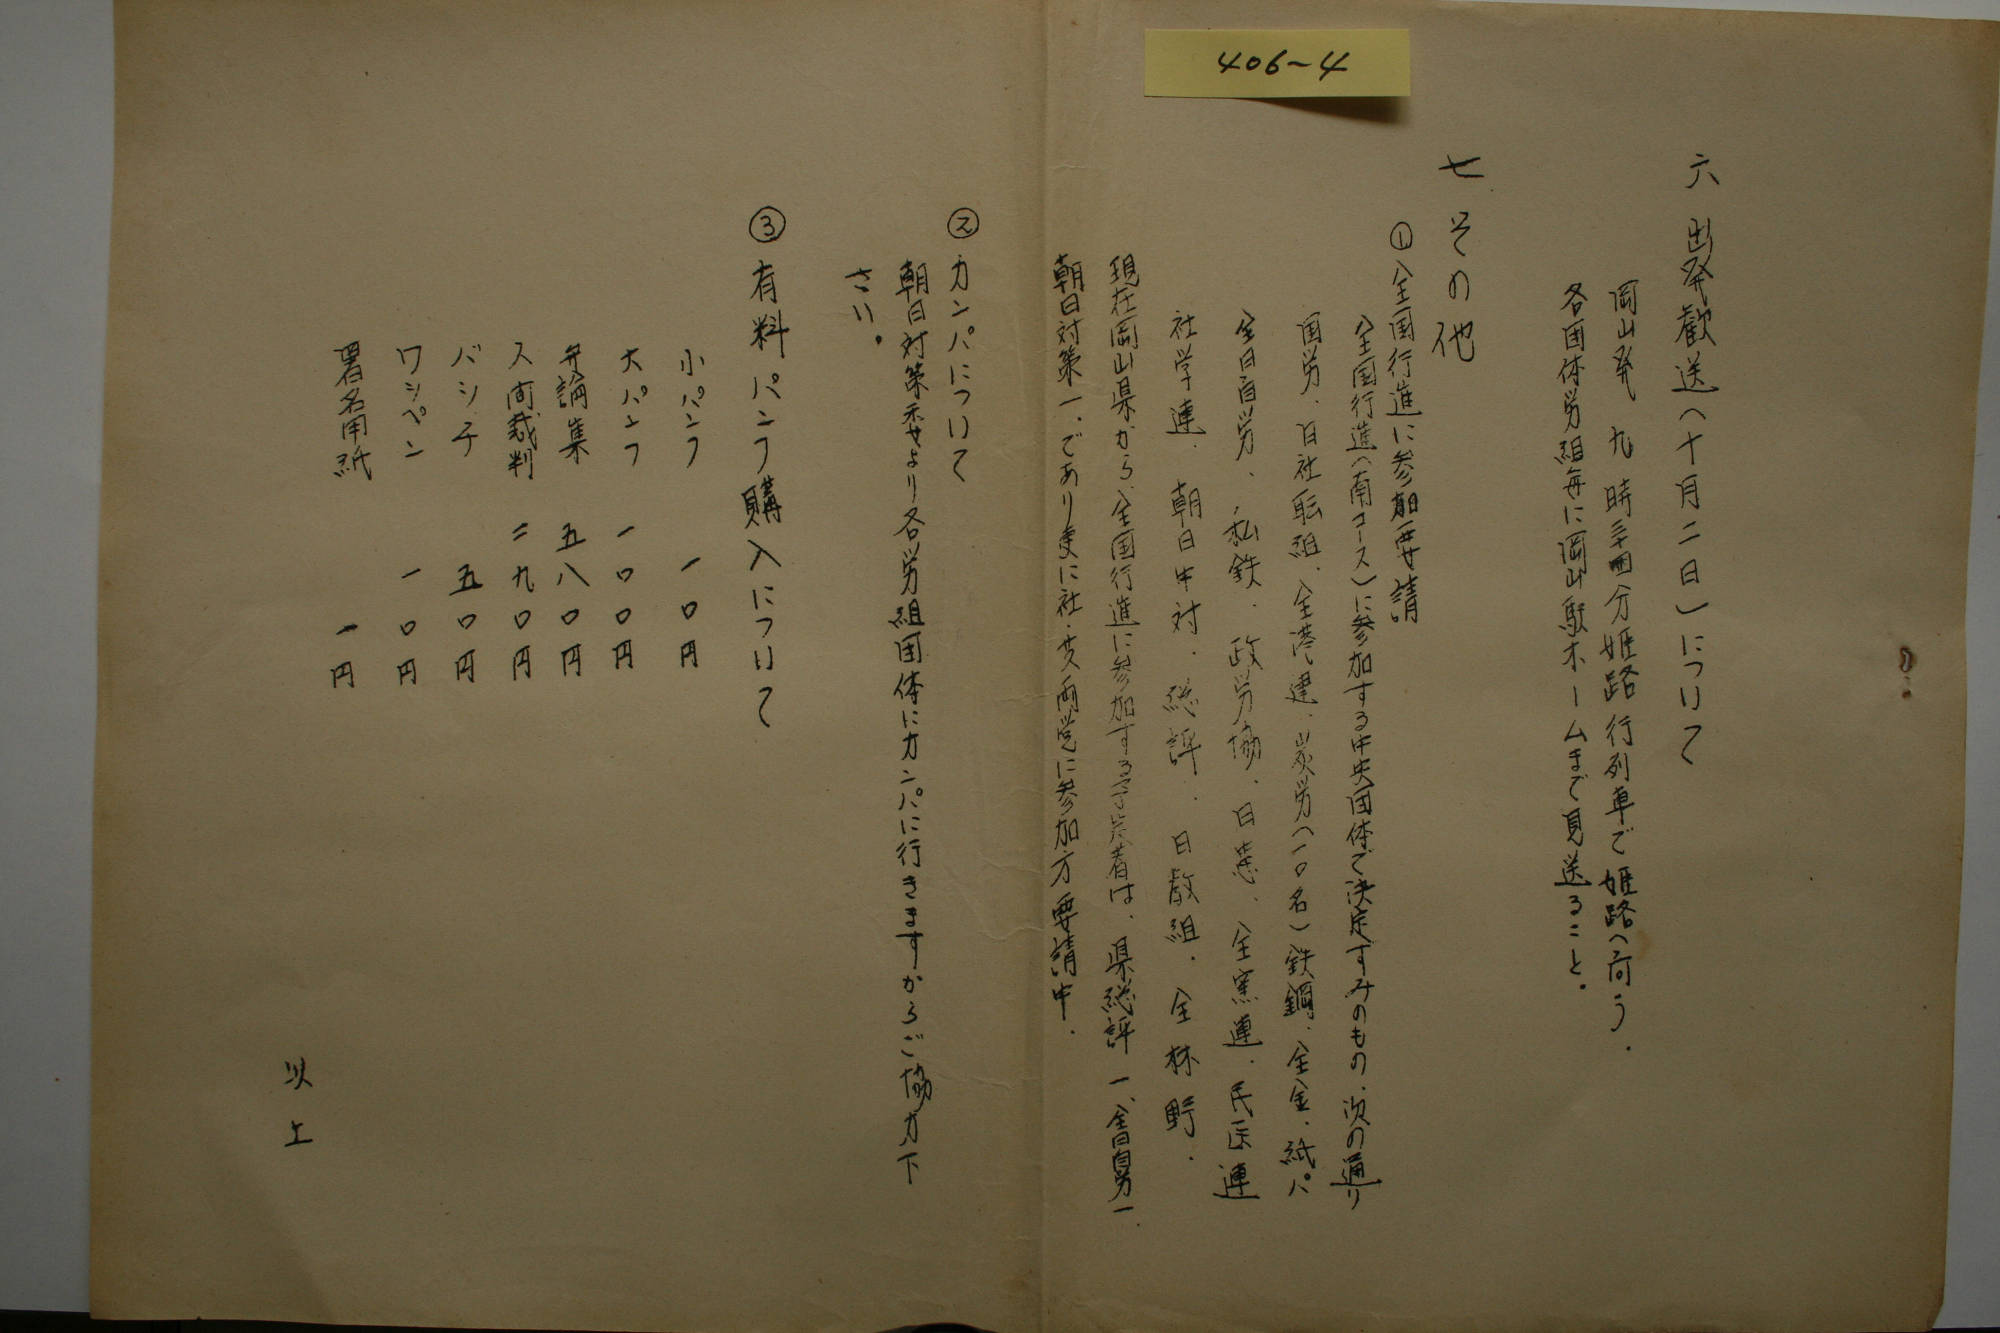 406-4
六 出発歓送(十月二日)について
岡山発 九時三四分姫路行列車で姫路へ向う.
各団体労組毎に岡山駅ホームまで見送ること.
七 その他
① 全国行進に参加要請
全国行進(南コース)に参加する中央団体で決定すみのもの、次の通り
国労、日社転組、全港建、炭労(一〇名)鉄鋼、全金、紙パ
全日自労、私鉄、政労協、日患、全窯連、民医連
社学連、朝日中対、総評、日教組、全林野.
現在岡山県から、全国行進に参加する者は、県総評一、全日自労一、
朝日対策一、であり更に社・共両党に参加方要請中.
② カンパについて
朝日対策委より各労組団体にカンパに行きますからご協力下
さい。
③ 有料パンフ購入について
小パンフ 一〇円
大パンフ 一〇〇円
弁論集 五八〇円
人間裁判 二九〇円
バッチ 五〇円
ワッペン 一〇円
署名用紙 一円
以上